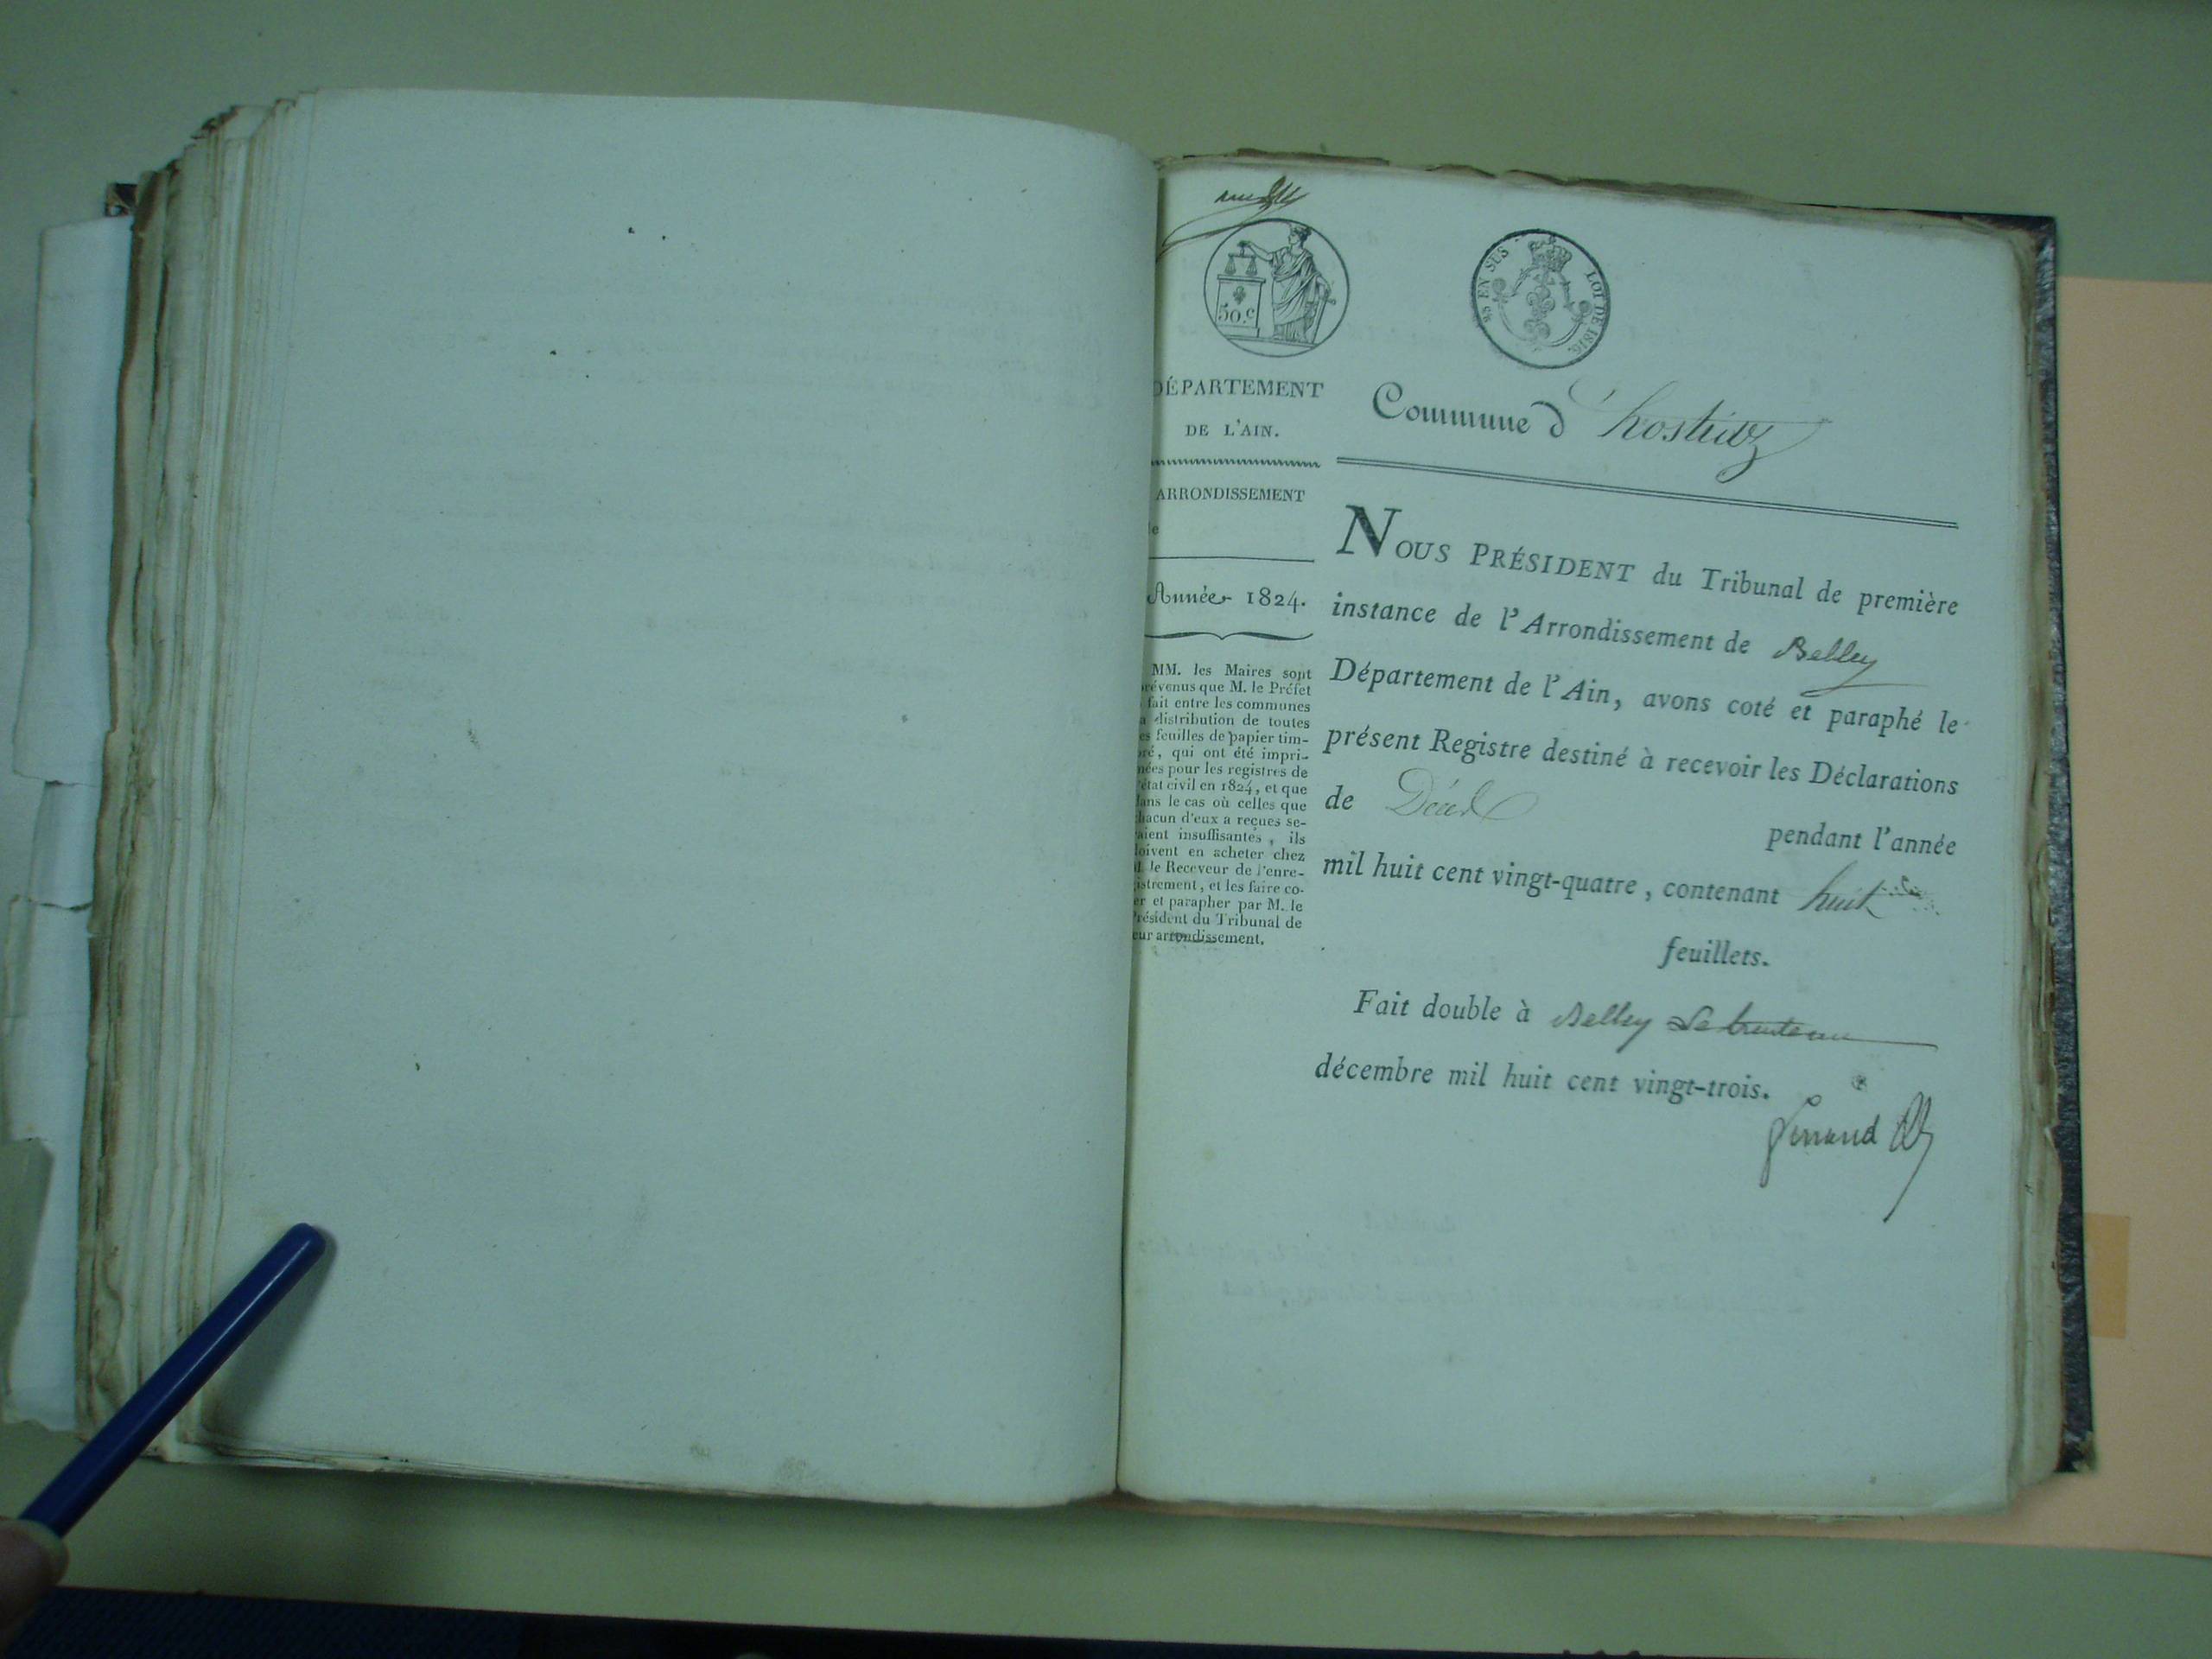 50.c
95 EN SUS LOI DE 1816.
DÉPARTEMENT
DE L'AIN.
ARRONDISSEMENT
Année 1824.
MM. les Maires sont
révenus que M. le Préfet
fait entre les communes
a distribution de toutes
es feuilles de papier tim-
ré, qui ont été impri-
mées pour les registres de
état civil en 1824, et que
dans le cas où celles que
chacun d'eux a reçues se-
raient insuffisantes, ils
doivent en acheter chez
M. le Receveur de l'enre-
gistrement, et les faire co-
er et parapher par M. le
Président du Tribunal de
eur arrondissement.
Commune d'hostiaz
NOUS PRÉSIDENT du Tribunal de première
instance de l'Arrondissement de Belley
Département de l'Ain, avons coté et paraphé le
présent Registre destiné à recevoir les Déclarations
de Décès pendant l'année
mil huit cent vingt-quatre, contenant huit
feuillets.
Fait double à Belley Le
décembre mil huit cent vingt-trois.